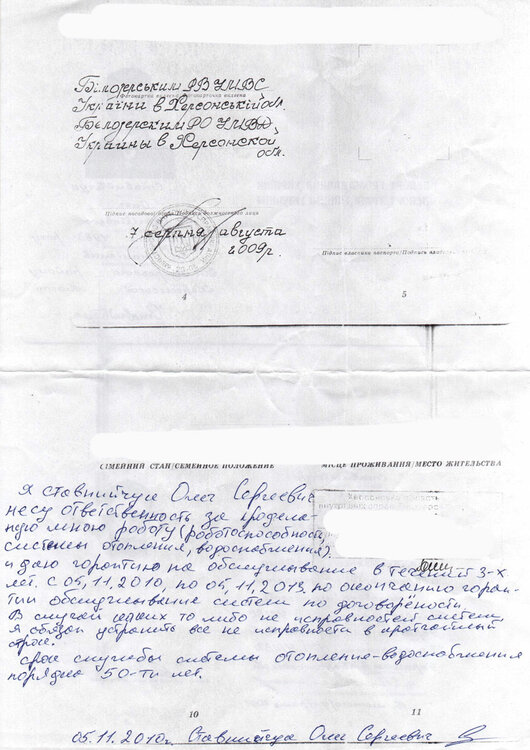 Білозерським РВ УМВС
України в Херсонській обл.
Белозерским РО УМВД
Украины в Херсонской
обл.
Підпис посадової особи/Подпись должностного лица
7 серпня/августа
2009г.
4
Підпис власника паспорта/Подпись
5
СІМЕЙНИЙ СТАН/СЕМЕЙНОЕ ПОЛОЖЕНИЕ
МІСЦЕ ПРОЖИВАННЯ/МЕСТО ЖИТЕЛЬСТВА
Я Ставнийчук Олег Сергеевич
несу ответственность за продела
ную мною роботу (работоспособность,
системы отопления, водоснабжения).
и даю горантию на обслуживание в течений 3-х
лет. с 05,11,2010, по 05,11,2013. по окончанию горан-
тии обслуживание систем по договорености
В случаи каких то либо не исправностей систем
Я обязан устранить все не исправности в кратчайший
срок.
срок службы системы отопление-водоснабжения
порядка 50-ти лет.
10
11
05.11.2010г. Ставнийчук Олег Сергеевич